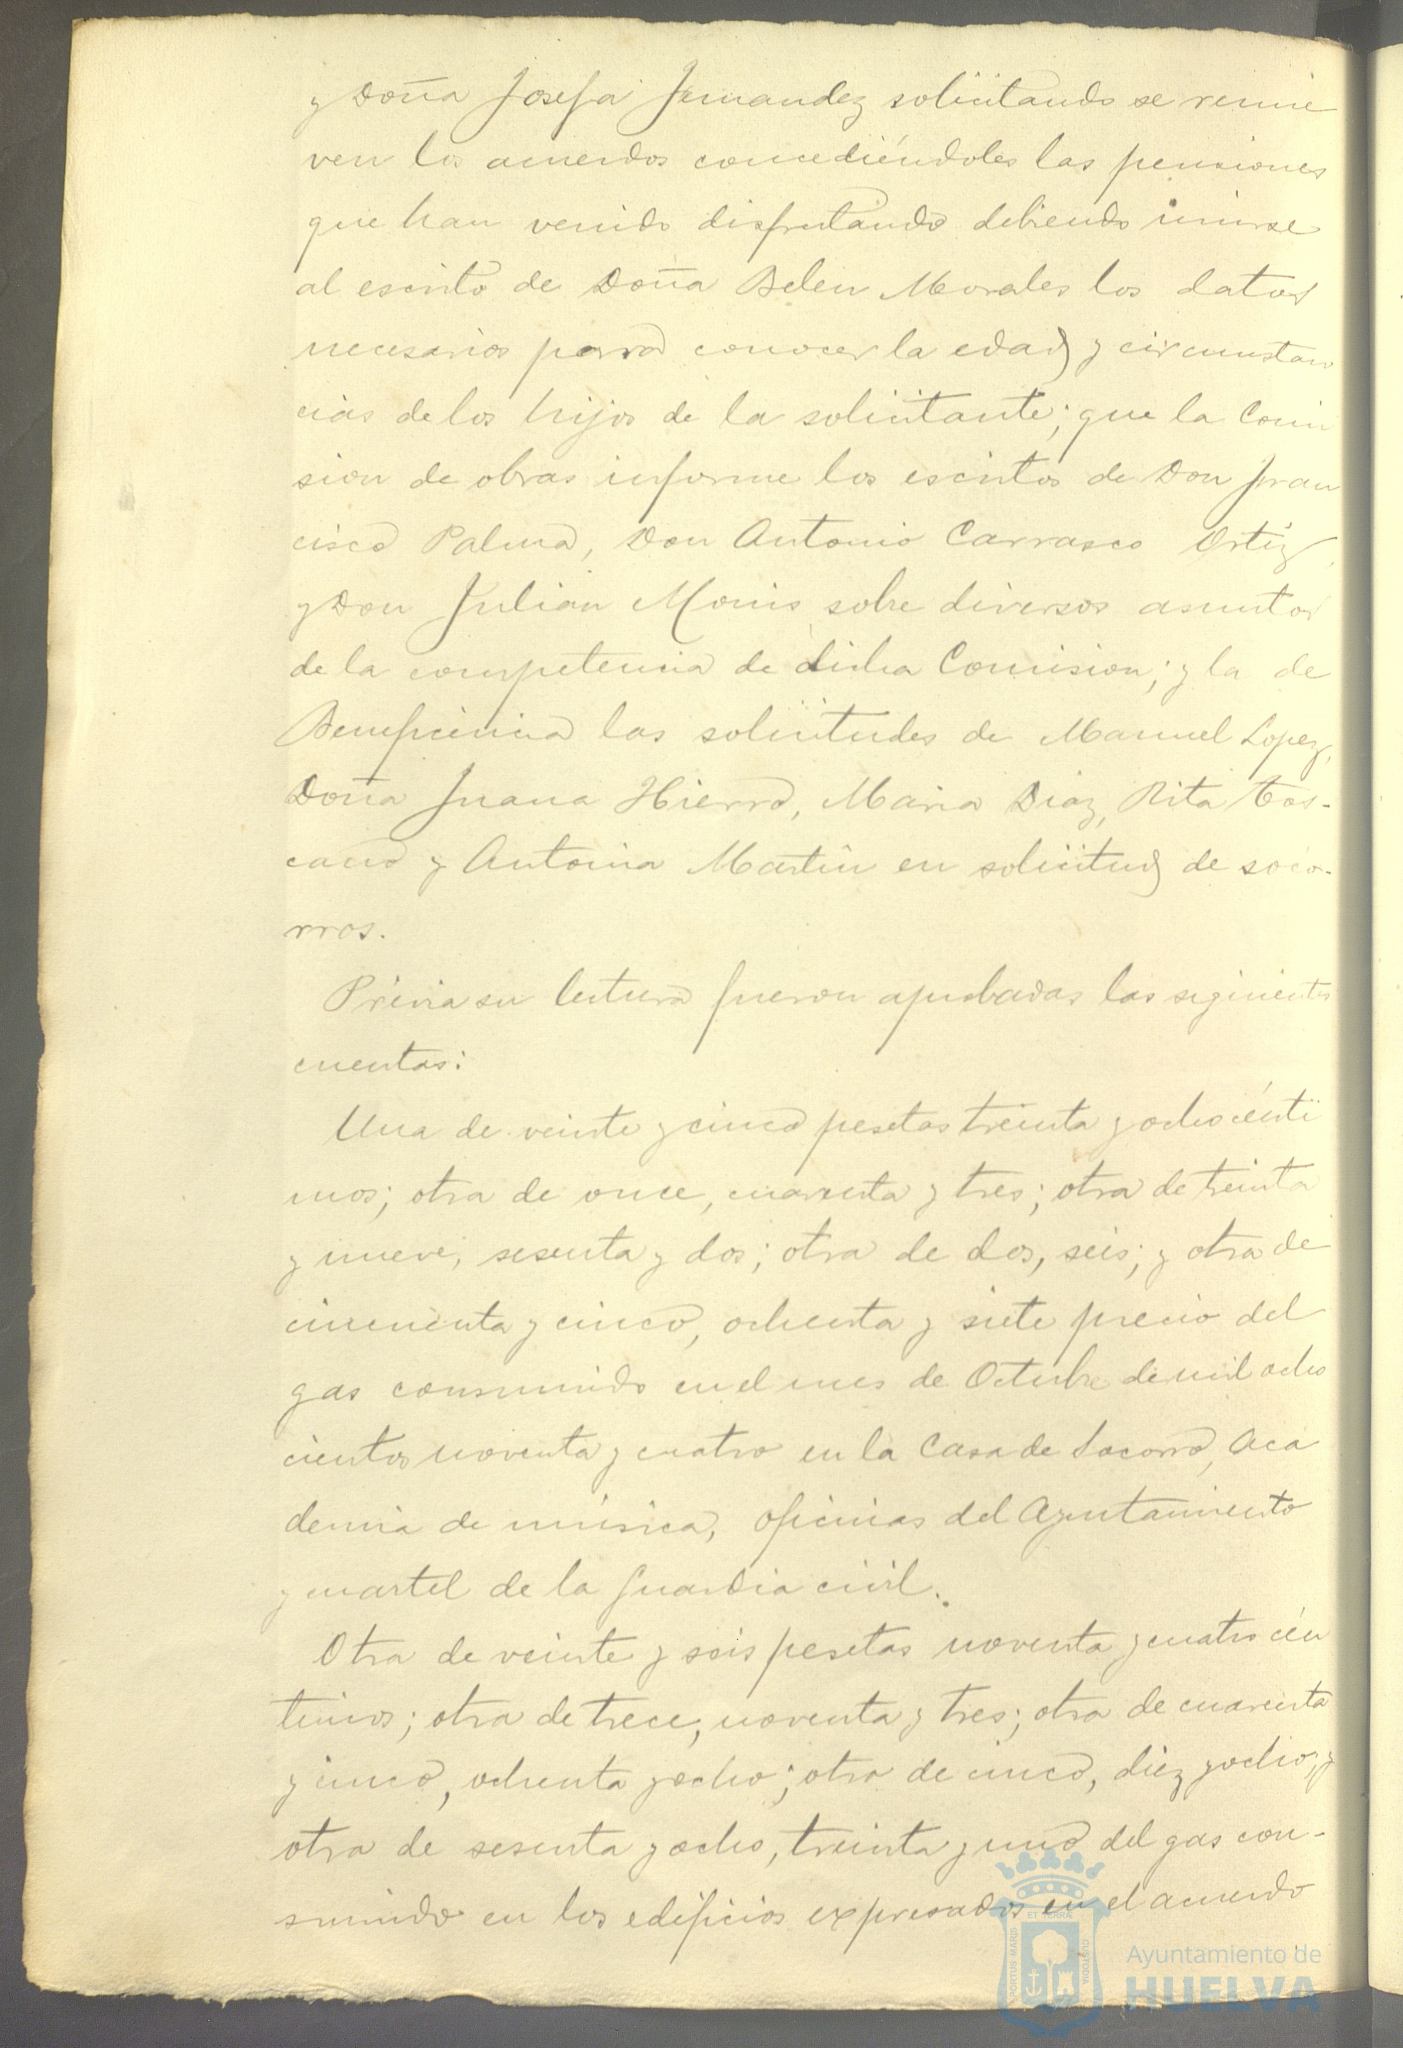 y Doña Josefa Fernandez solicitando se renue
ven los acuerdos concediéndoles las pensiones
que han venido disfrutando debiendo unirse
al escrito de Doña Belen Morales los datos
necesarios para conocer la edad y circunstan
cias de los hijos de la solicitante; que la Comi
sion de obras informe los escritos de Don Fran
cisco Palma, Don Antonio Carrasco Ortiz,
y Don Julian Monis sobre diversos asuntos
de la competencia de dicha Comision; y la de
Beneficencia las solicitudes de Manuel Lopez,
Doña Juana Hierro, Maria Diaz, Rita Tos-
cano y Antonia Martin en solicitud de soco-
rros.
Previa su lectura fueron aprobadas las siguientes
cuentas:
Una de veinte y cinco pesetas treinta y ocho cénti
mos; otra de once, cuarenta y tres; otra de treinta
y nueve, sesenta y dos; otra de dos, seis; y otra de
cincuenta y cinco, ochenta y siete precio del
gas consumido en el mes de Octubre de mil ocho
cientos noventa y cuatro en la Casa de Socorro, Aca
demia de música, oficinas del Ayuntamiento
y cuartel de la Guardia civil.
Otra de veinte y seis pesetas noventa y cuatro cén
timos; otra de trece, noventa y tres; otra de cuarenta
y cinco, ochenta y ocho; otra de cinco, diez y ocho; y
otra de sesenta y ocho, treinta y uno del gas con-
sumido en los edificios expresados en el acuerdo
PORTUS MARIS ET TERRÆ CUSTODIA
Ayuntamiento de
HUELVA